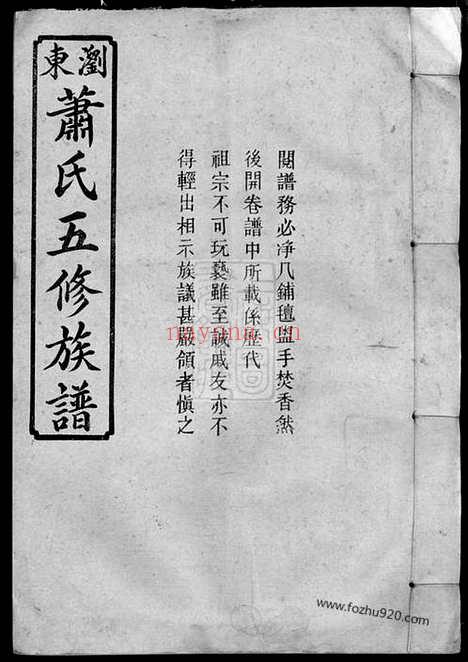 閱譜務必净几鋪氊盥手焚香然
後開卷譜中所載係歷代
祖宗不可玩褻雖至誠戚友亦不
得輕出相示族議甚嚴領者慎之
瀏東
蕭氏五修族譜
nayona.cn
www.fozhu920.com